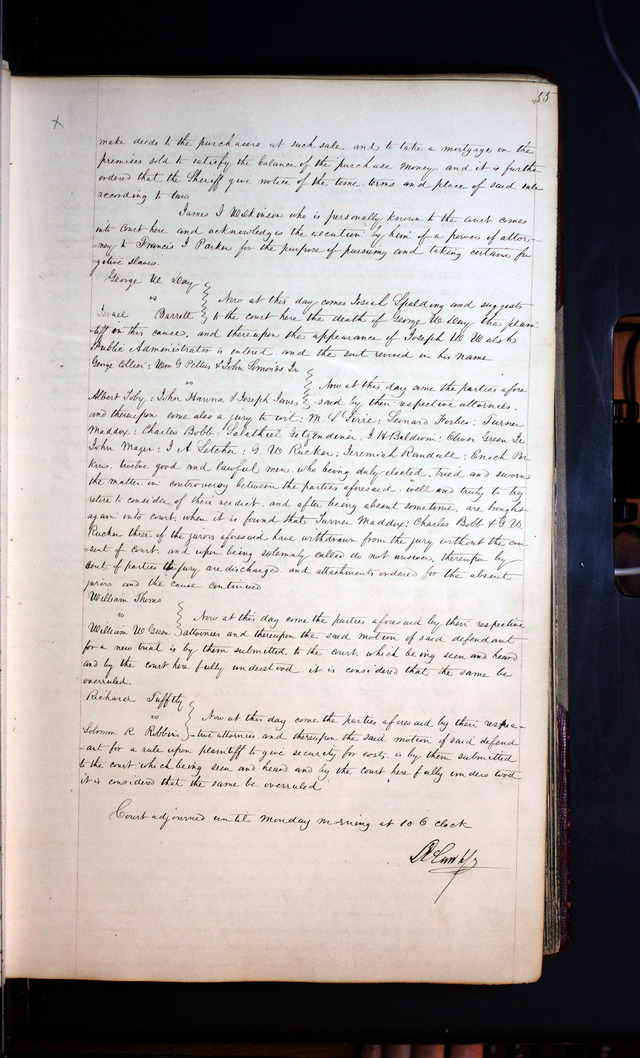 55
X
make deeds to the purchasers at such sale. and to take a mortgage on the
premises sold to satisfy the balance of the purchase money. and it is further
ordered that the Sheriff give notice of the time terms and place of said sale
according to law
James I Wilkinson who is personally known to the court comes
into court here and acknowledges the execution by him of a power of attor-
-ney to Francis I Parker for the purpose of pursuing and taking certain fu
gitive slaves.
George W Day
vs
Now at this day comes Josiah Spalding and suggests
Israel Barrett to the court here the death of George W Day the plain
tiff in this cause, and thereupon the appearance of Joseph W Walsh
Public Administrator is entered and the suit revived in his name
George Collier: Wm G Pettus & John Simonds Jr
vs
Now at this day come the parties afore
Albert Toby: John Hanna & Joseph Jones said by their respective attornies.
and thereupon come also a jury to wit: M. L Sirie: Leonard Forbes: Turner
Maddox: Charles Bobb: Salathiel Getzendener: I H Baldwin: Oliver Green Jr
John Mager: I A Letcher: G W Rucker: Jeremiah Randall: Enoch Per
kins. twelve good and lawful men. who being duly elected, tried and sworn
the matter in controversy between the parties aforesaid. well and truly to try
retire to consider of their verdict. and after being absent sometime, are brought
again into court, when it is found that, Turner Maddox: Charles Bobb & G W
Rucker three of the jurors aforesaid have withdrawn from the jury without the con
sent of court. and upon being solemnly called do not answer, thereupon by
sent of parties the jury are discharged. and attachments ordered for the absent
jurors and the cause continued
William Thoms
vs
Now at this day come the parties aforesaid by their respective
William W Green attornies and thereupon the said motion of said defendant
for a new trial is by them submitted to the court. which being seen and heard
and by the court here fully understood it is considered that the same be
overruled.
Richard Tufftly
vs
Now at this day come the parties aforesaid by their respec-
Solomon R Robbins -tive attornies, and thereupon the said motion of said defend
-ant for a rule upon plaintiff to give security for costs. is by them submitted
to the court: which being seen and heard and by the court here fully understood
it is considered that the same be overruled
Court adjourned until monday morning at 10 O clock